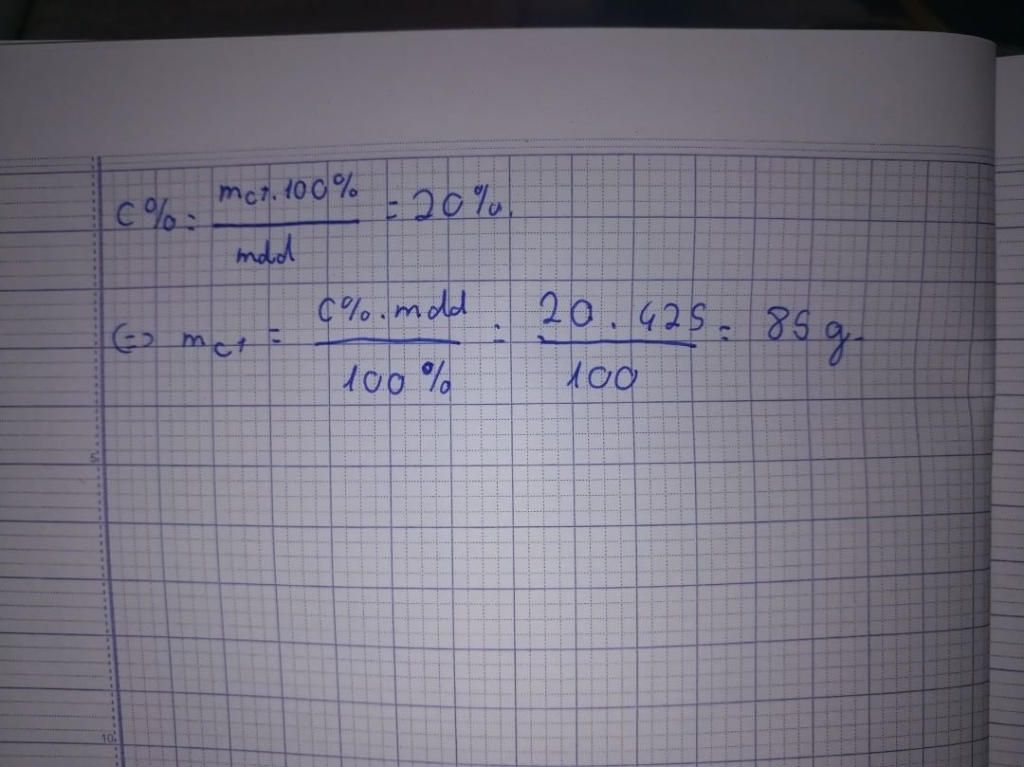 C% = mct.100% / mdd = 20%.
<=> mct = C%.mdd / 100% = 20.425 / 100 = 85 g.
5
10